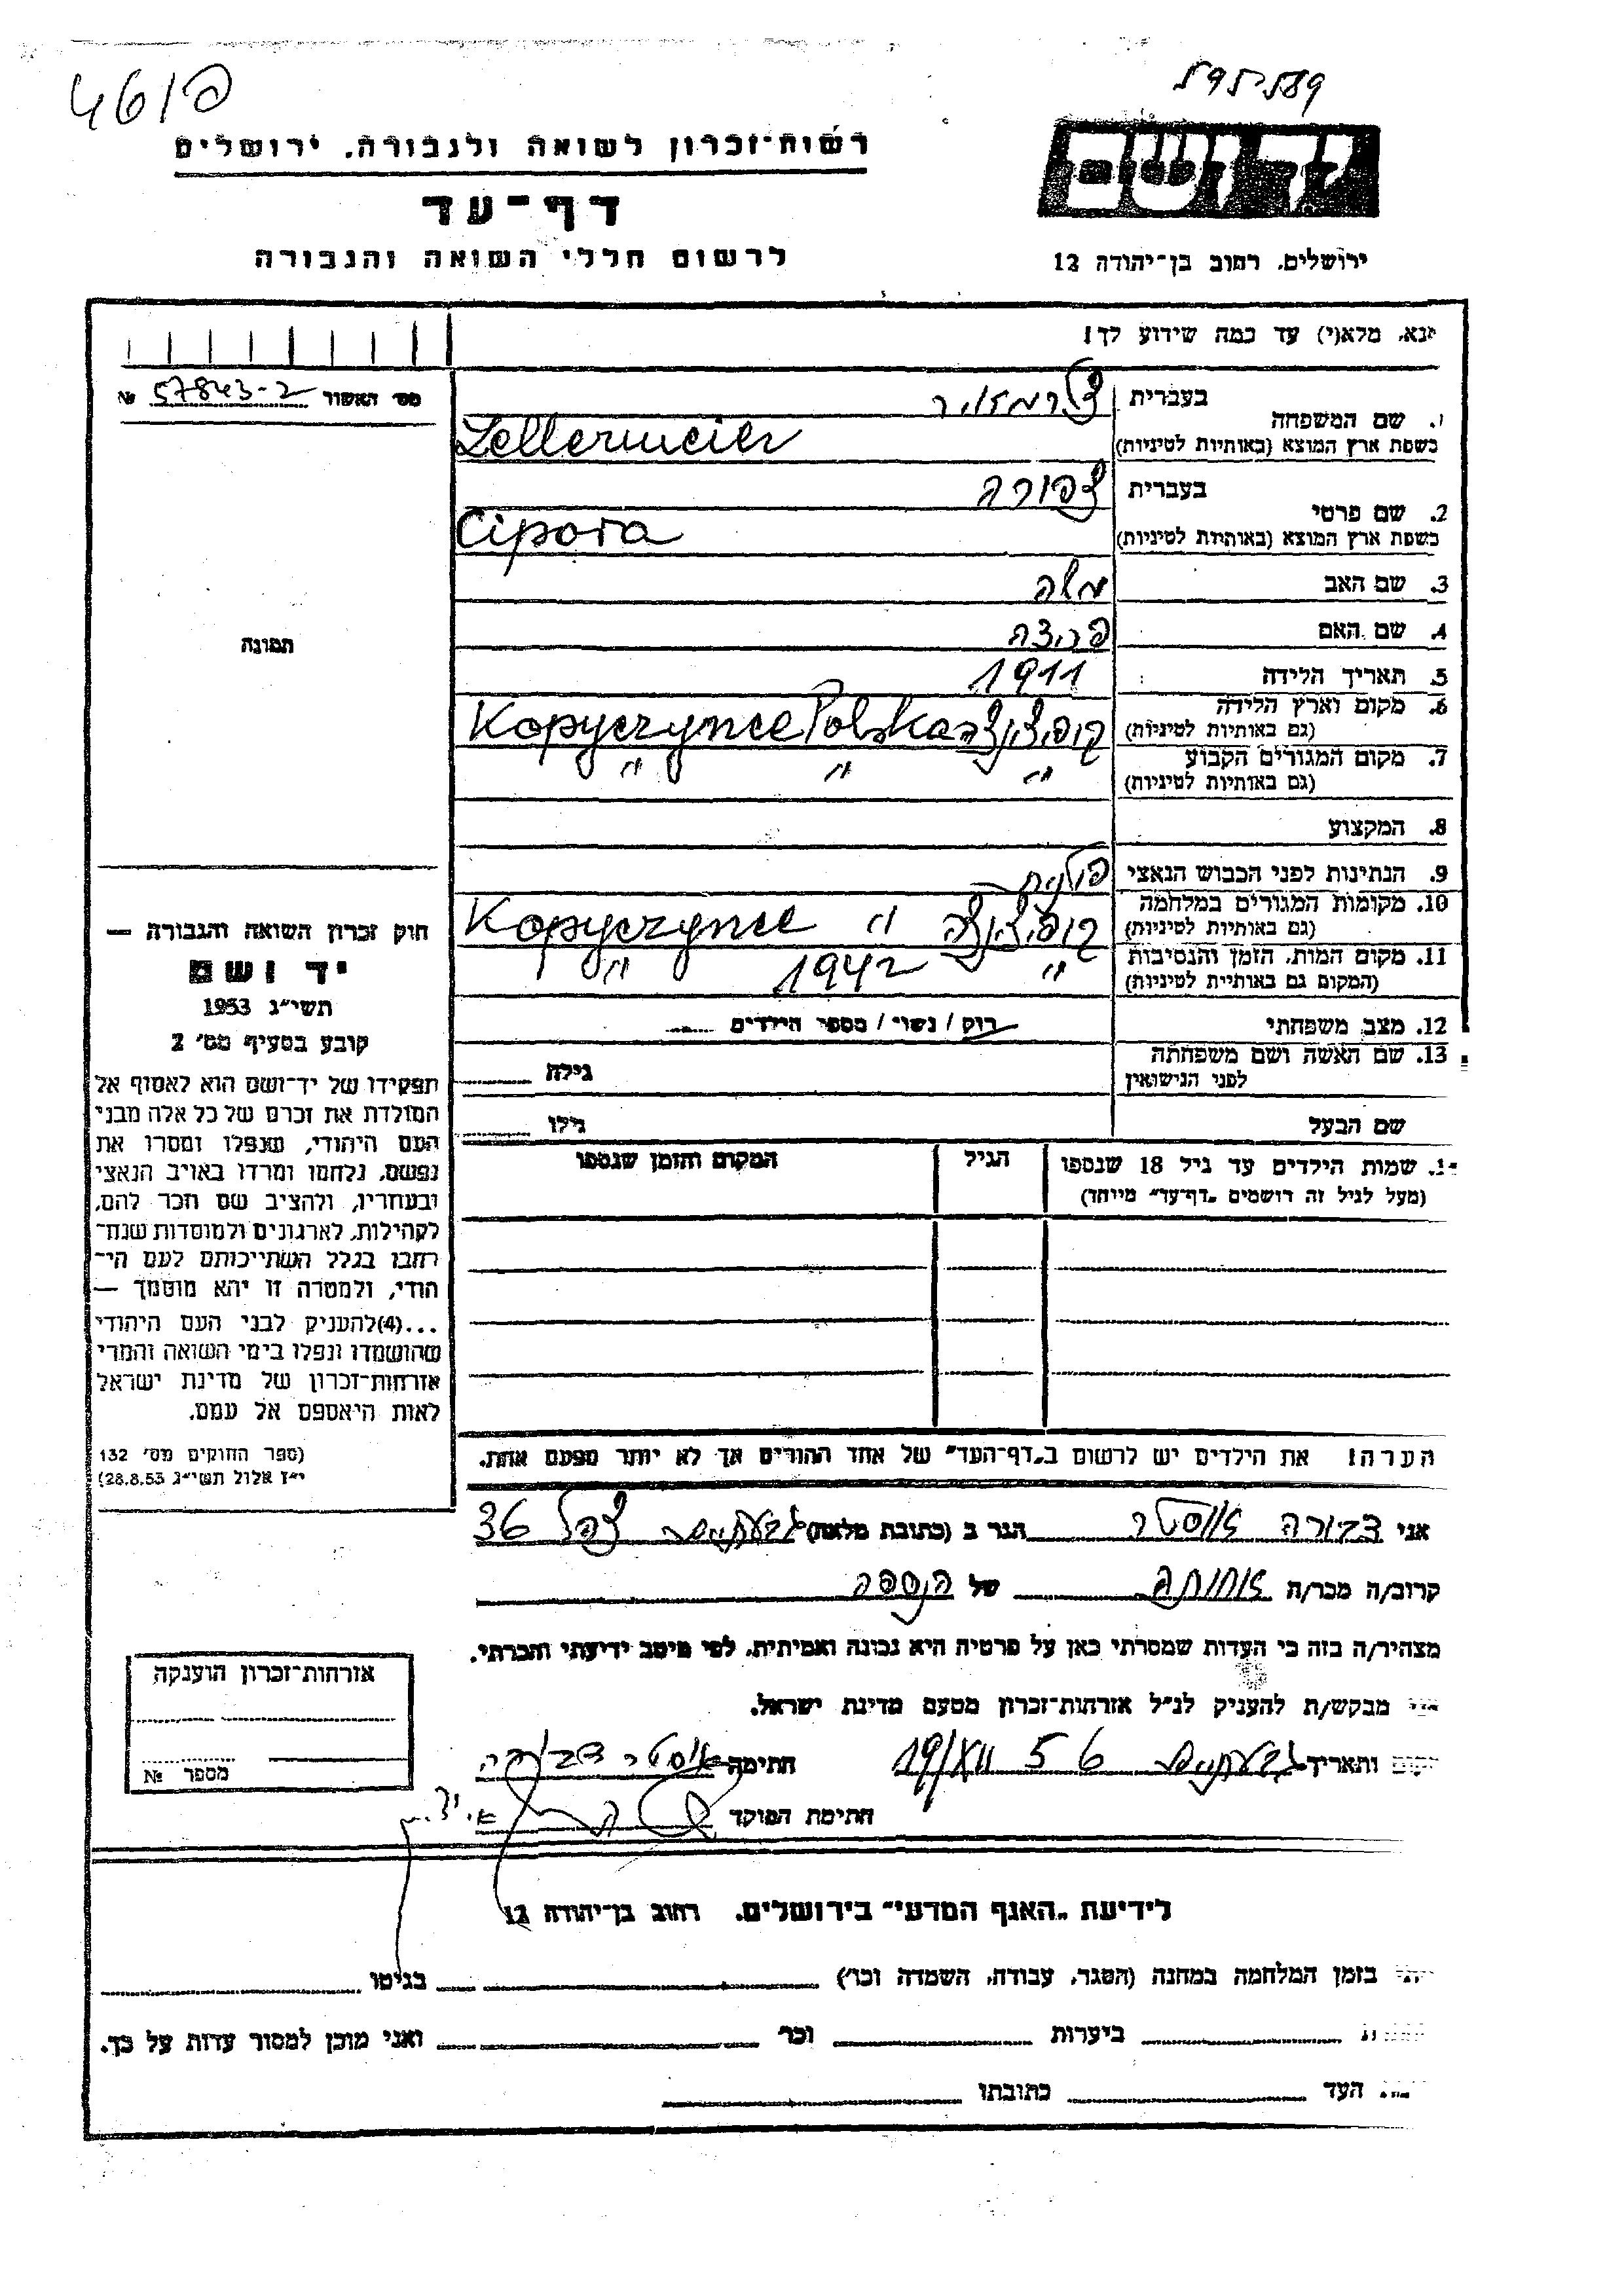 4619
רשות־זכרון לשואה ולגבורה, ירושלים
דף־עד
לרשום חללי השואה והגבורה
יד ושם
ירושלים, רחוב בן־יהודה 12
נא, מלא(י) עד כמה שידוע לך!
מס׳ האשור 57843-2 №
1. שם המשפחה
בעברית צלרמאיר
כשפת ארץ המוצא (באותיות לטיניות) Zellermeier
2. שם פרטי
בעברית צפורה
כשפת ארץ המוצא (באותיות לטיניות) Cipora
3. שם האב משה
4. שם האם
5. תאריך הלידה 1911
6. מקום וארץ הלידה קופיצ׳ינצה Kopyczynce Polska
(גם באותיות לטיניות)
7. מקום המגורים הקבוע " " "
(גם באותיות לטיניות)
8. המקצוע
9. הנתינות לפני הכבוש הנאצי פולנית
10. מקומות המגורים במלחמה קופיצ׳ינצה " Kopyczynce
(גם באותיות לטיניות)
11. מקום המות, הזמן והנסיבות " 1942 "
(המקום גם באותיות לטיניות)
12. מצב משפחתי רווק / נשוי / מספר הילדים
13. שם האשה ושם משפחתה
לפני הנישואין גילה
שם הבעל גילו
שמות הילדים עד גיל 18 שנספו הגיל המקום והזמן שנספו
(מעל לגיל זה רושמים „דף־עד״ מיוחד)
תמונה
חוק זכרון השואה והגבורה —
יד ושם
תשי״ג 1953
קובע בסעיף מס׳ 2
תפקידו של יד־ושם הוא לאסוף אל
המולדת את זכרם של כל אלה מבני
העם היהודי, שנפלו ומסרו את
נפשם, נלחמו ומרדו באויב הנאצי
ובעוזריו, ולהציב שם וזכר להם,
לקהילות, לארגונים ולמוסדות שנח־
רבו בגלל השתייכותם לעם הי־
הודי, ולמטרה זו יהא מוסמך —
...(4)להעניק לבני העם היהודי
שהושמדו ונפלו בימי השואה והמרי
אזרחות־זכרון של מדינת ישראל
לאות היאספם אל עמם.
(ספר החוקים מס׳ 132
י״ז אלול תשי״ג 28.8.53)
הערה! את הילדים יש לרשום ב„דף־העד״ של אחד ההורים אך לא יותר מפעם אחת.
אני דבורה אוסטר הגר ב (כתובת מלאה) גבעתיים 36
קרוב/ה מכר/ה אחותה של הנספה
מצהיר/ה בזה כי העדות שמסרתי כאן על פרטיה היא נכונה ואמיתית, לפי מיטב ידיעתי והכרתי.
מבקש/ת להעניק לנ״ל אזרחות־זכרון מטעם מדינת ישראל.
ותאריך גבעתיים 19/XII 56 חתימה אוסטר דבורה
חתימת הפוקד
אזרחות־זכרון הוענקה
מספר №
לידיעת „האגף המדעי״ בירושלים, רחוב בן־יהודה 12
בזמן המלחמה במחנה (הסגר, עבודה, השמדה וכו׳) בגיטו
ביערות וכו׳ ואני מוכן למסור עדות על כך.
העד כתובתו